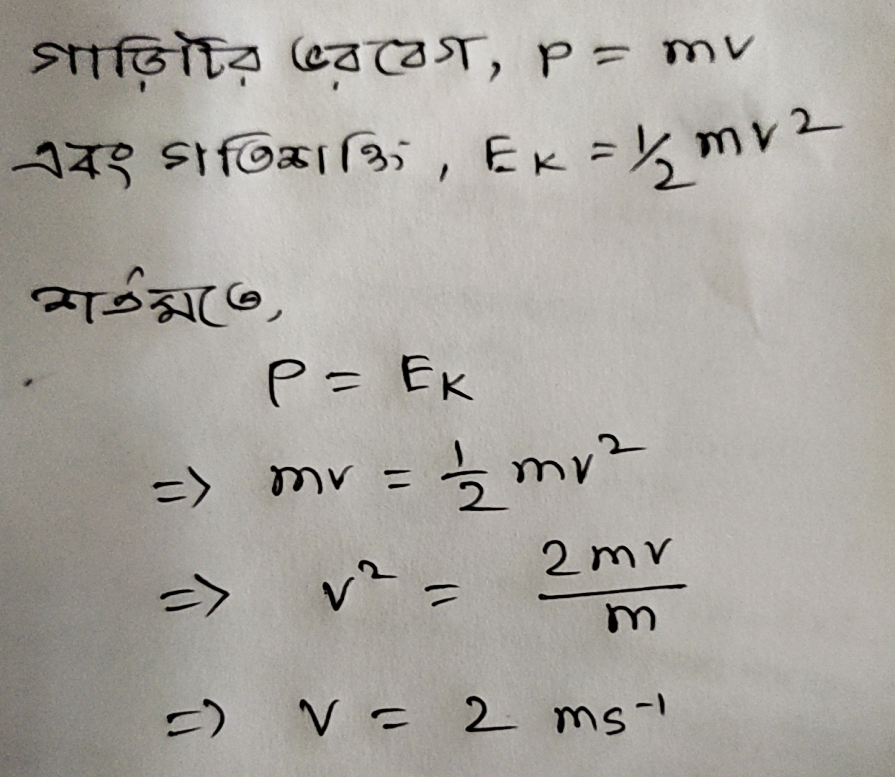 গাড়িটির ভরবেগ, P = mv
এবং গতিশক্তি, EK = 1/2 mv2
শর্তমতে,
P = EK
=> mv = 1/2 mv2
=> v2 = 2mv/m
=> V = 2 ms-1